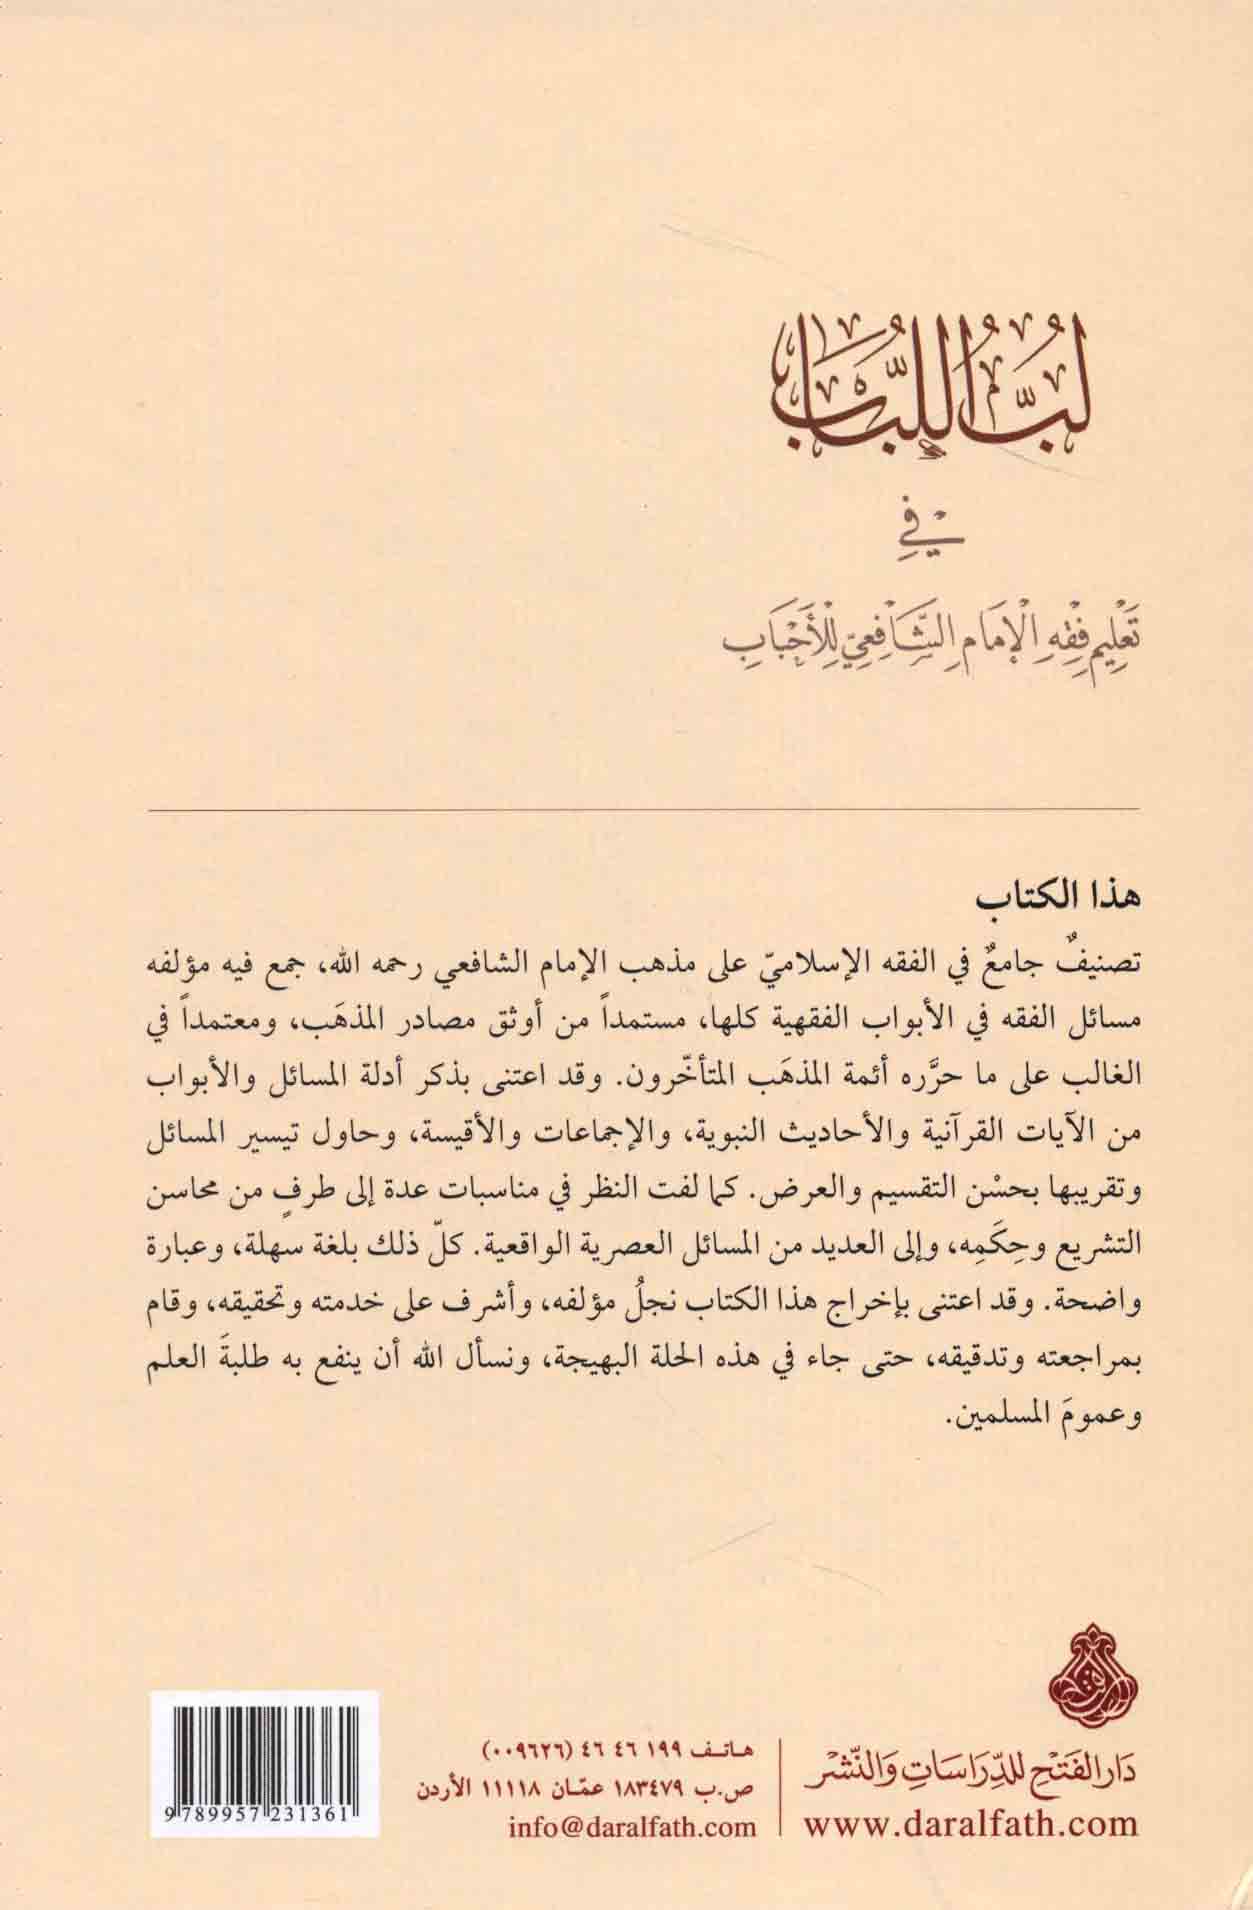 لُبُّ اللُّبَابِ
فِي
تَعْلِيمِ فِقْهِ الْإِمَامِ الشَّافِعِيِّ لِلْأَحْبَابِ
هذا الكتاب
تصنيفٌ جامعٌ في الفقه الإسلاميّ على مذهب الإمام الشافعي رحمه الله، جمع فيه مؤلفه
مسائل الفقه في الأبواب الفقهية كلها، مستمداً من أوثق مصادر المذهَب، ومعتمداً في
الغالب على ما حرَّره أئمة المذهَب المتأخّرون. وقد اعتنى بذكر أدلة المسائل والأبواب
من الآيات القرآنية والأحاديث النبوية، والإجماعات والأقيسة، وحاول تيسير المسائل
وتقريبها بحسْن التقسيم والعرض. كما لفت النظر في مناسبات عدة إلى طرفٍ من محاسن
التشريع وحِكَمِه، وإلى العديد من المسائل العصرية الواقعية. كلّ ذلك بلغة سهلة، وعبارة
واضحة. وقد اعتنى بإخراج هذا الكتاب نجلُ مؤلفه، وأشرف على خدمته وتحقيقه، وقام
بمراجعته وتدقيقه، حتى جاء في هذه الحلة البهيجة، ونسأل الله أن ينفع به طلبةَ العلم
وعمومَ المسلمين.
دَار الفَتْحِ لِلدِّرَاسَاتِ وَالنَّشْر
www.daralfath.com
هاتف ١٩٩ ٤٦ ٤٦ (٠٠٩٦٢٦)
ص.ب ١٨٣٤٧٩ عمّان ١١١١٨ الأردن
info@daralfath.com
9 789957 231361